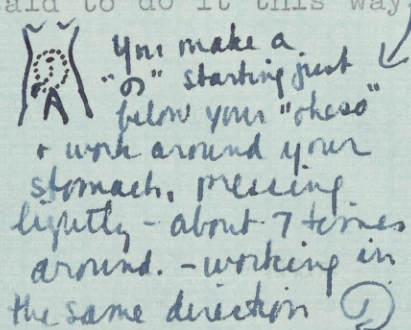 said to do it this way
You make a
"の" starting just
below your "oheso"
+ work around your
stomach, pressing
lightly - about 7 times
around. - working in
the same direction